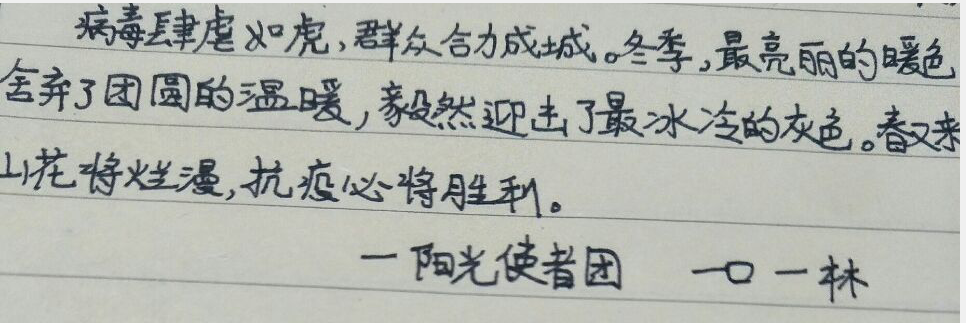 病毒肆虐如虎,群众合力成城。冬季,最亮丽的暖色
舍弃了团圆的温暖,毅然迎击了最冰冷的灰色。春又来
山花将烂漫,抗疫必将胜利。
一阳光使者团 一口一林